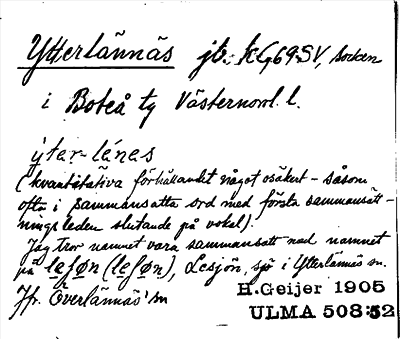 Ytterlännäs jb. kG69SV, socken
i Boteå tg Västernorrl. l.
ýter-lénes
(kvantitativa förhållandet något osäkert - såsom
ofta i sammansatta ord med första sammansätt-
ningsleden slutande på vokal).
Jag tror namnet vara sammansatt med namnet
på lesøn (lesøn), Lesjön, sjö i Ytterlännäs sn.
Jfr Överlännäs sn
H.Geijer 1905
ULMA 508:52